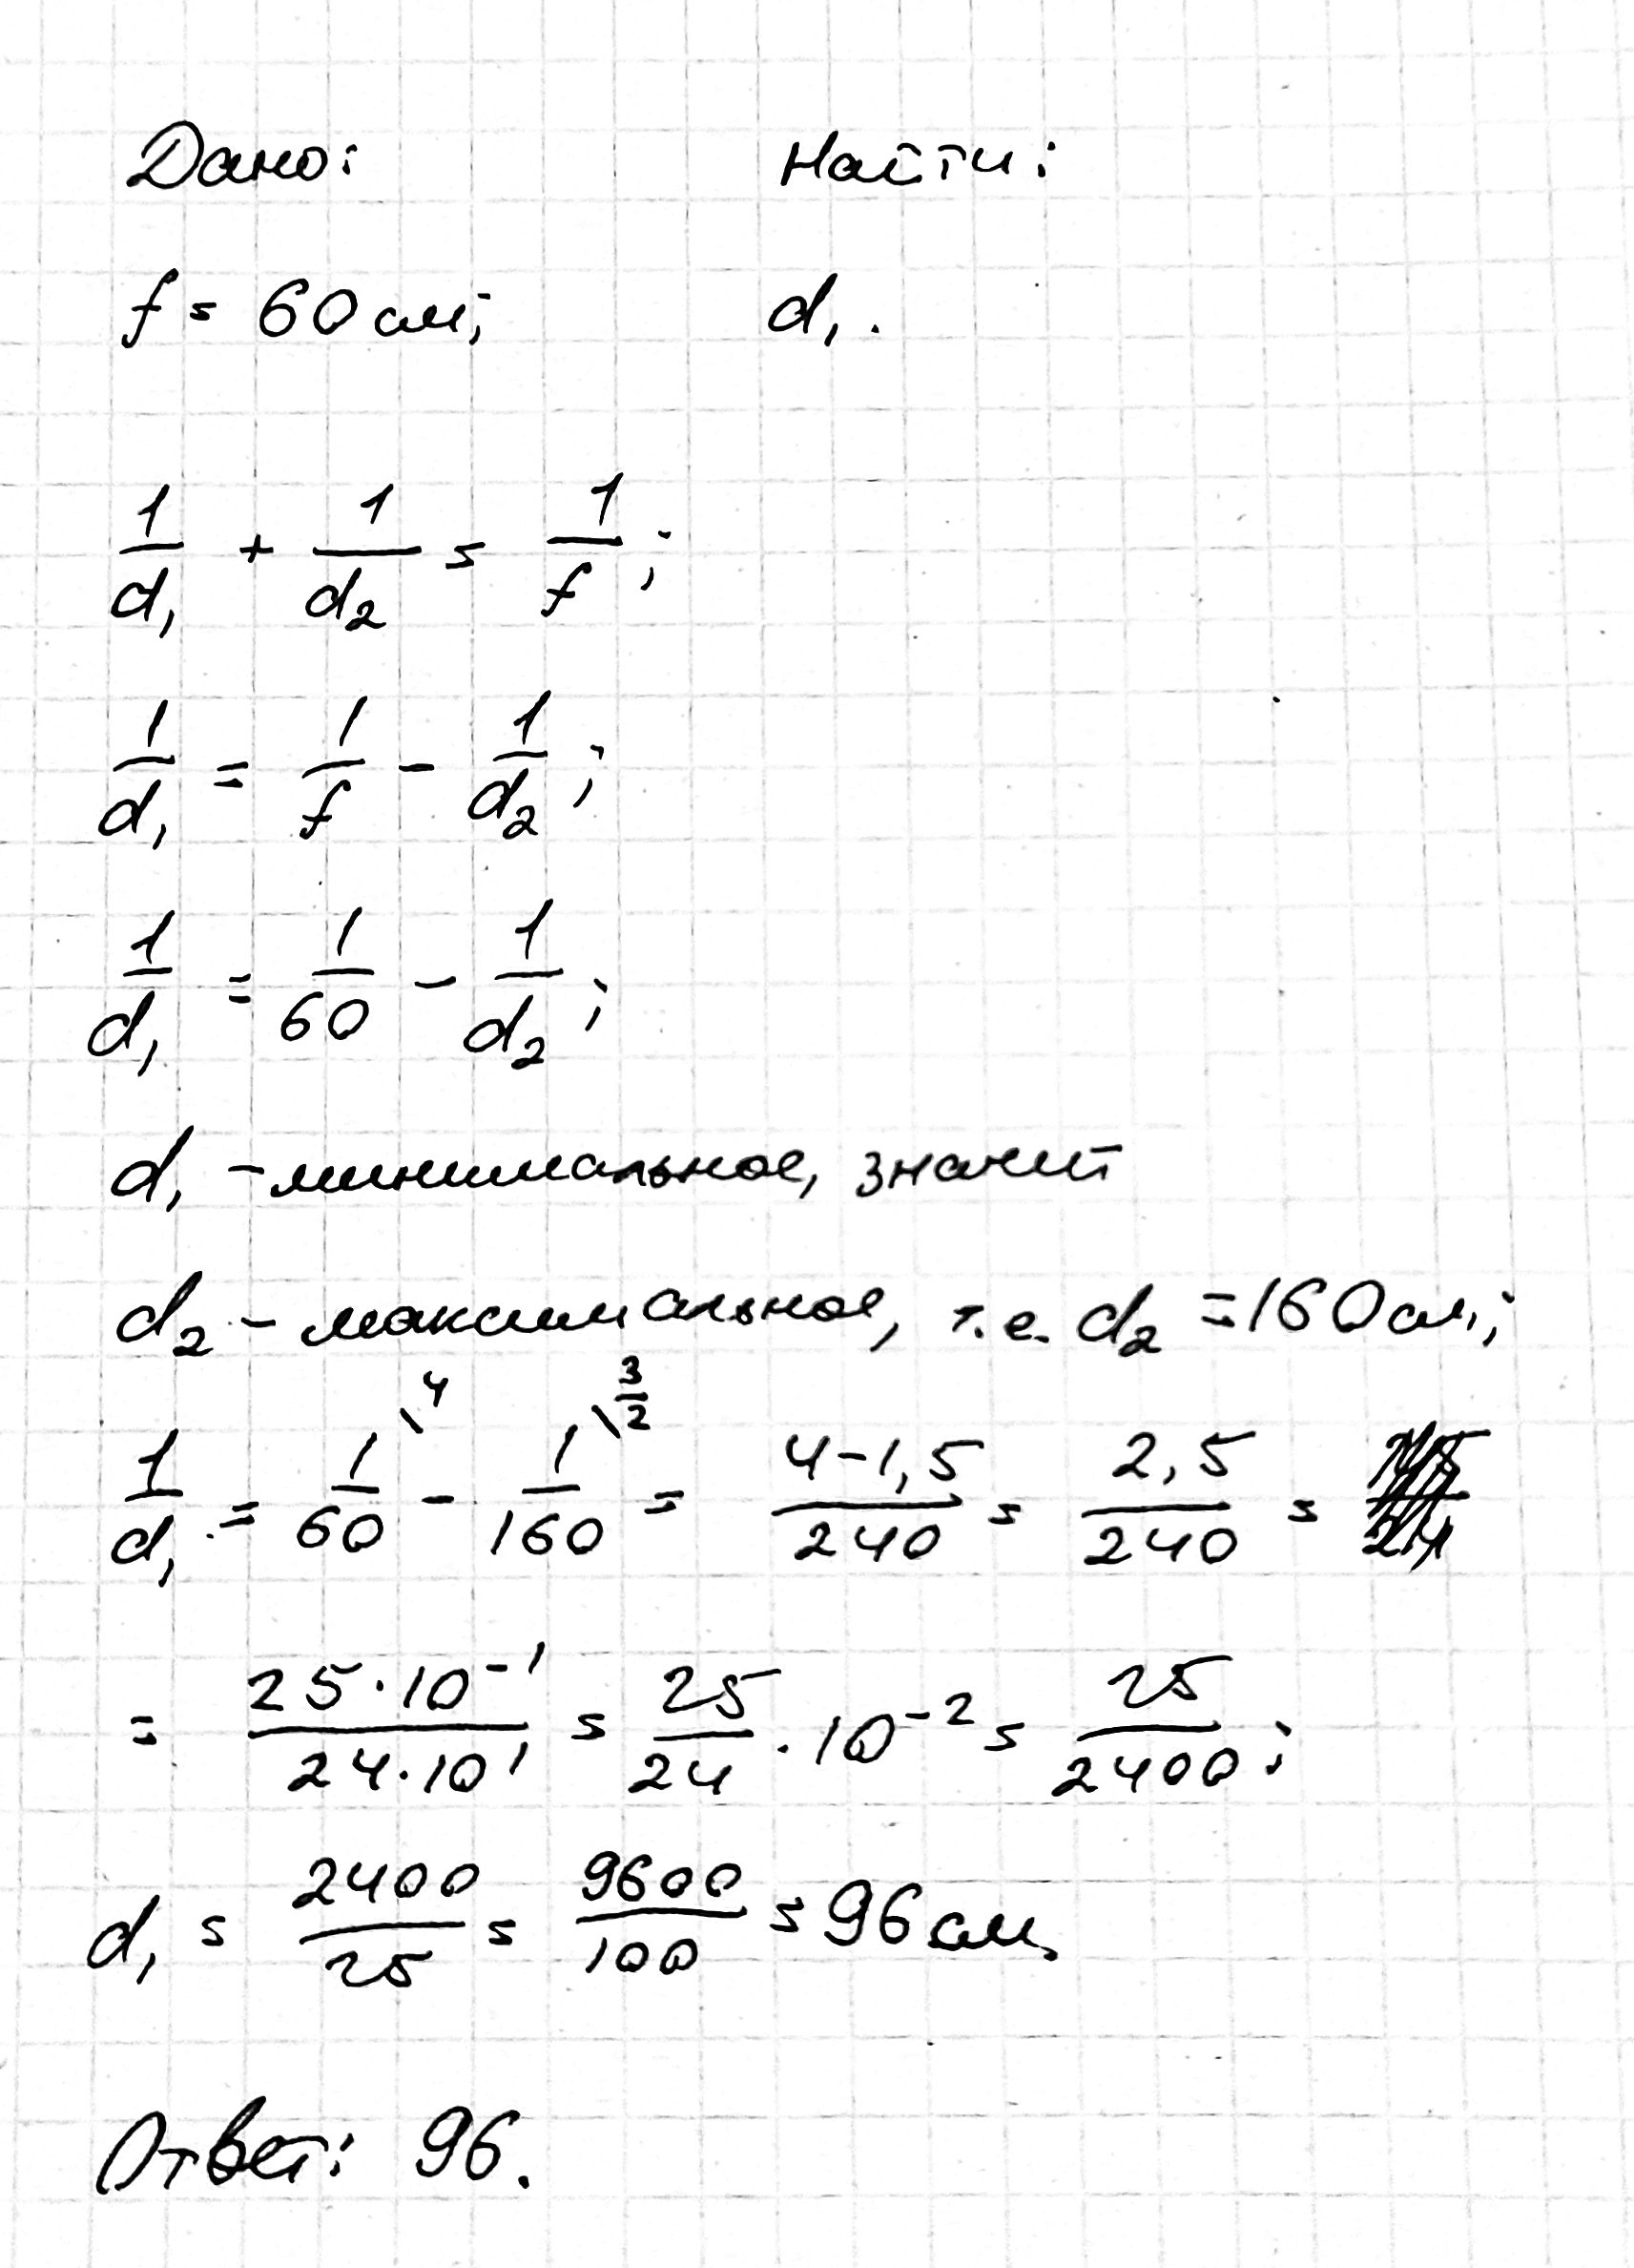 Дано: Найти:
f = 60 см; d₁.
1/d₁ + 1/d₂ = 1/f;
1/d₁ = 1/f - 1/d₂;
1/d₁ = 1/60 - 1/d₂;
d₁ - минимальное, значит
d₂ - максимальное, т.е. d₂ = 160 см;
1/d₁ = 1/60 \4 - 1/160 \3/2 = (4-1,5)/240 = 2,5/240 =
= (25·10⁻¹)/(24·10¹) = 25/24 · 10⁻² = 25/2400;
d₁ = 2400/25 = 9600/100 = 96 см.
Ответ: 96.